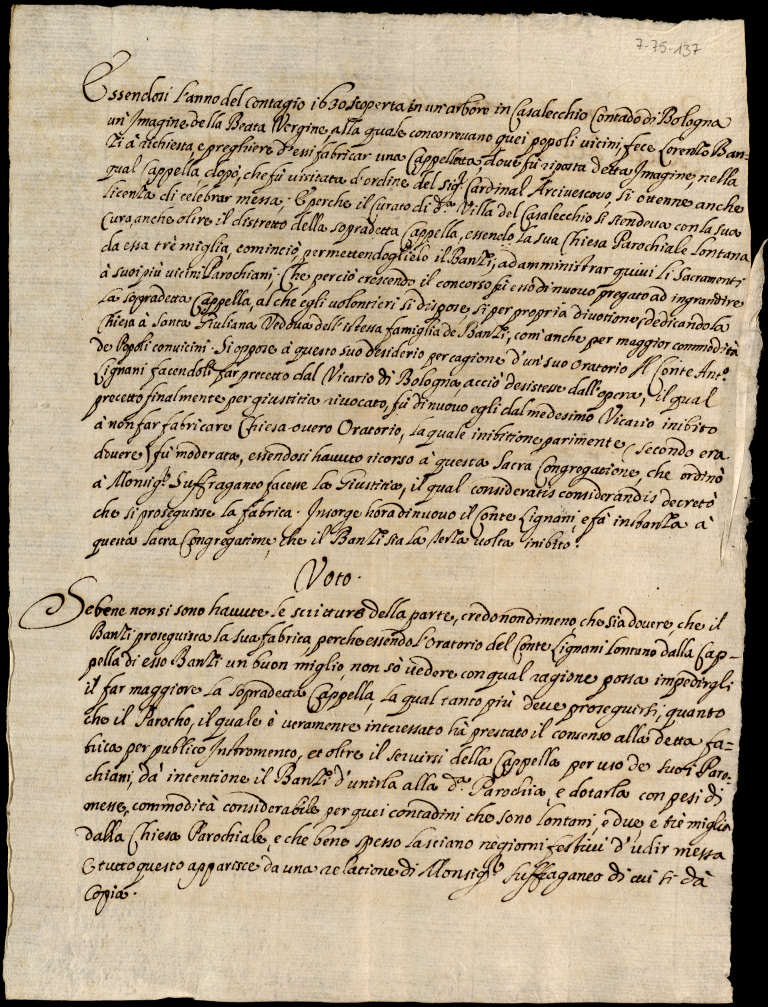 7-75-137
Essendosi l'anno del contagio 1630 scoperta in un'arbore in Casalecchio Contado di Bologna
un'Imagine della Beata Vergine, alla quale concorrevano quei popoli vicini, fece Lorenzo Ban=
zi à richiesta, e preghiere d'essi fabricar una Cappelletta, dove fù riposta detta Imagine, nella
qual Cappella dopò, che fù visitata d'ordine del sig.r Cardinal Arcivescovo, si ottenne anche
licenza di celebrar messa; E perche il Curato di d.a Villa del Casalecchio si stendeva con la sua
Cura, anche oltre il distretto della sopradetta Cappella, essendo la sua Chiesa Parochiale lontana
da essa trè miglia, cominciò, permettendoglielo il Banzi, ad amministrar quivi li Sacramenti
à suoi più vicini Parochiani; Che perciò crescendo il concorso fù esso di nuovo pregato ad ingrandire
la sopradetta Cappella, al che egli volontieri si dispose, si per propria divotione, (dedicando la
Chiesa à Santa Giuliana Vedova dell'istessa famiglia de Banzi, com'anche per maggior commodità
de Popoli convicini. Si oppose à questo suo desiderio per cagione d'un suo Oratorio il Conte Ant.o
Lignani facendoli far precetto dal Vicario di Bologna, acciò desistesse dall'opera, il qual
precetto finalmente per giustitia rivocato, fù di nuovo egli dal medesimo Vicario inibito
à non far fabricare Chiesa overo Oratorio, la quale inibitione parimente (secondo era
dovere) fù moderata, essendosi havuto ricorso à questa Sacra Congregatione, che ordinò
à Monsig.r Suffraganeo facesse la Giustitia, il qual consideratis considerandis decretò
che si proseguisse la fabrica. Insorge hora di nuovo il Conte Lignani, e fà instanza à
questa Sacra Congregatione, che il Banzi sia la terza volta inibito.
Voto.
Sebene non si sono havute le scritture della parte, credo nondimeno che sia dovere, che il
Banzi proseguisca la sua fabrica, perche essendo l'Oratorio del Conte Lignani lontano dalla Cap=
pella di esso Banzi un buon miglio, non sò vedere con qual ragione possa impedirgli
il far maggiore la sopradetta Cappella, la qual tanto più deve proseguirsi, quanto
che il Parocho, il quale è veramente interessato hà prestato il consenso alla detta fa=
brica per publico Instromento, et oltre il servirsi della Cappella per uso de suoi Paro=
chiani, dà intentione il Banzi d'unirla alla d.a Parochia, e dotarla con pesi di
messe, commodità considerabile per quei contadini che sono lontani, e due, e trè miglia
dalla Chiesa Parochiale, e che bene spesso lasciano ne giorni festivi d'udir messa
E tutto questo apparisce da una relatione di Monsig.r Suffraganeo di cui si dà
Copia.